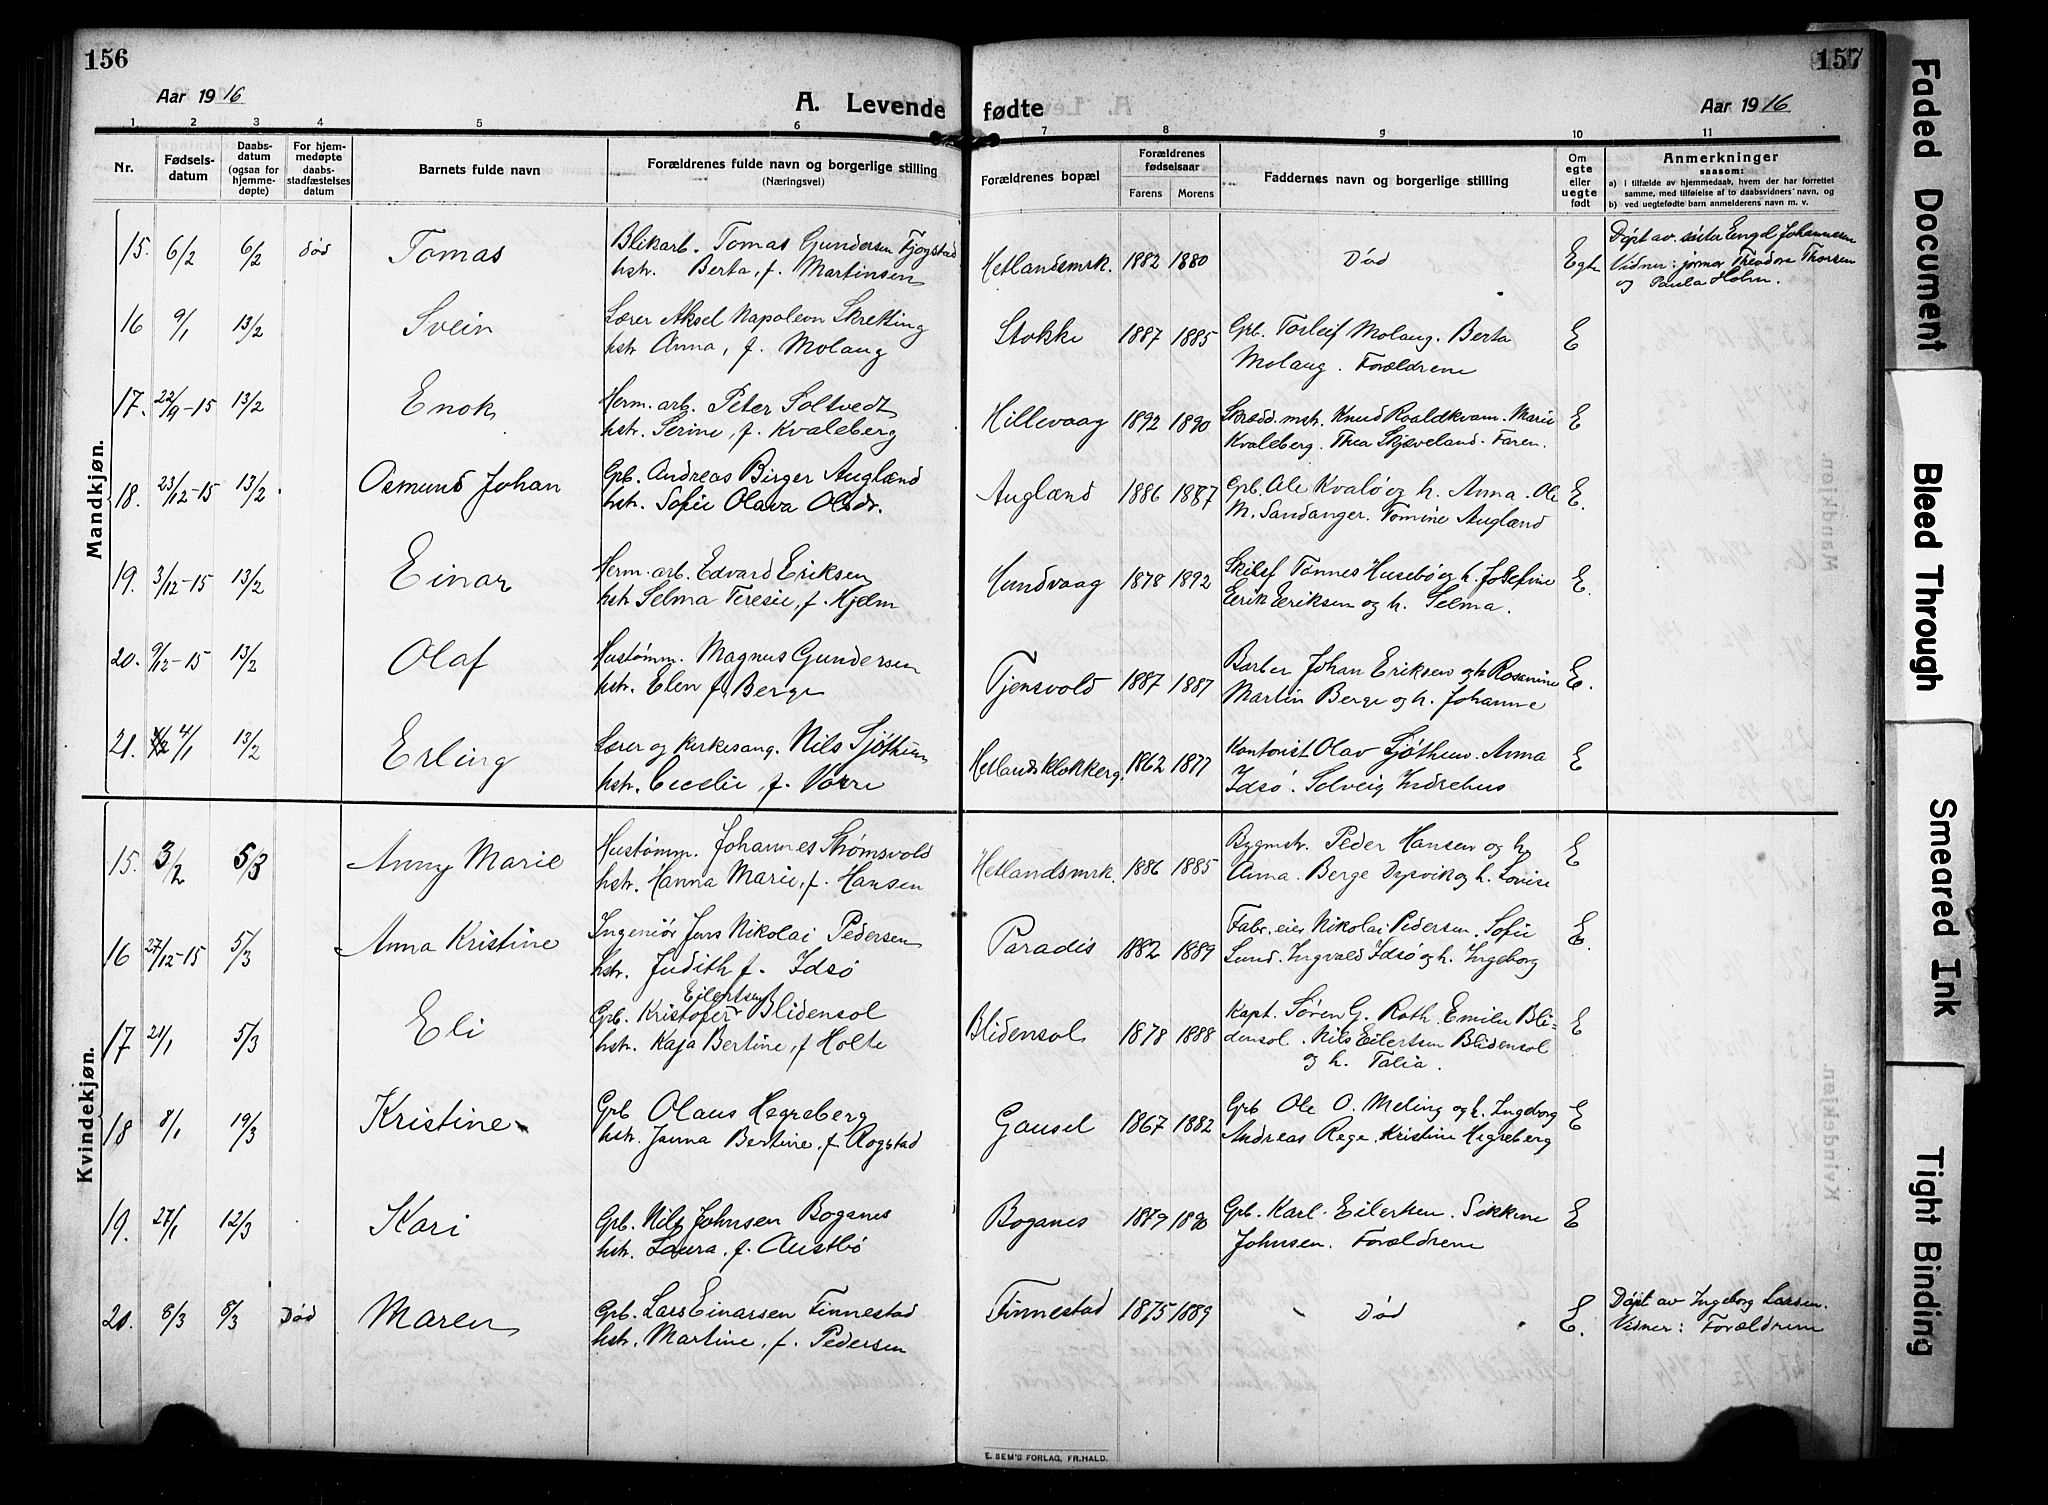 156
Aar 1916
A. Levende
1 2 3 4 5 6
Nr. Fødselsdatum Daabsdatum (ogsaa for hjemmedøpte) For hjemmedøpte daabsstadfæstelses datum Barnets fulde navn Forældrenes fulde navn og borgerlige stilling (Næringsvei)
Mandkjøn.
15. 6/2 6/2 død Tomas Blikarb. Tomas Gundersen Fjogstad
hstr. Berta, f. Martinsen
16 9/1 13/2 Svein Lærer Aksel Napoleon Skretting
hstr Anna, f. Molaug
17. 22/9-15 13/2 Enok Herm. arb. Peter Soltvedt
hstr. Serine, f. Kvaleberg
18. 23/12-15 13/2 Osmund Johan Gpb. Andreas Birger Augland
hstr. Sofie Olava Olsdr.
19. 3/12-15 13/2 Einar Herm. arb. Edvard Eriksen
hstr Selma Teresie, f. Hjelm
20. 9/12-15 13/2 Olaf Hustømm. Magnus Gundersen
hstr. Elen f. Berge
21. 4/1 13/2 Erling Lærer og Kirkesang. Nils Sjøthun
hstr. Cecelie, f. Vorre
Kvindekjøn.
15. 3/2 5/3 Anny Marie Hustømm. Johannes Strømsvold
hstr. Hanna Marie, f. Hansen
16 27/12-15 5/3 Anna Kristine Ingeniør Jens Nikolai Pedersen
hstr. Judith f. Idsø
17 21/1 5/3 Eli Gpb. Kristofer Eilertsen Blidensol
hstr. Kaja Bertine, f Holte
18 8/1 19/3 Kristine Gpb Olaus Hegreberg
hstr. Janna Bertine, f Rogstad
19. 27/1 12/3 Kari Gpb. Nils Johnsen Boganes
hstr. Laura, f. Austbø
20. 8/3 8/3 Død Maren Gpb. Lars Einarsen Finnestad
hstr. Martine, f. Pedersen
157
Aar 1916
fødte
7 8 9 10 11
Forældrenes bopæl Forældrenes fødselsaar Farens Morens Faddernes navn og borgerlige stilling Om egte eller uegte født Anmerkninger saasom:
a) i tilfælde av hjemmedaab, hvem der har forrettet samme, med tilføielse af to daabsvidners' navn, og
b) ved uegtefødte barn anmelderens navn m. v.
Hetlandsmrk. 1882 1880 Død Egte Døpt av søster Engel Johannesen
Vidner: jormor Theodora Thorsen
og Paula Holm.
Stokke 1887 1885 Gpb. Torleif Molaug. Berta E
Molaug. Forældrene
Hillevaag 1892 1890 Skrædd. mstr. Knud Roaldkvam. Marie E
Kvaleberg. Thea Skjæveland. Faren.
Augland 1886 1887 Gpb. Ole Kvalø og h. Anna. Ole E.
M. Sandanger. Tomine Augland
Hundvaag 1878 1892 Skilsf Tønnes Husebø og h. Josefine E.
Eerik Eriksen og h. Selma.
Tjensvold 1887 1887 Barber Johan Eriksen og h Rosanine E.
Martin Berge og h. Johanne
Hetlands klokkerg. 1862 1877 Kontorist Olav Sjøthun. Anna E
Idsø. Solveig Indrehus
Hetlandsmrk. 1886 1885 Bygmstr. Peder Hansen og h. E
Anna. Berge Dysvik og h. Lovise
Paradis 1882 1889 Fabr. eier Nikolai Pedersen. Sofie E.
Lund. Ingvald Idsø og h. Ingeborg
Blidensol 1878 1888 Kapt. Søren G. Roth. Emilie Bli- E
densol. Nils Eilertsen Blidensol
og h. Talia.
Gausel 1867 1882 Gpb Ole O. Meling og h. Ingeborg E
Andreas Rege. Kristine Hegreberg
Boganes 1879 1890 Gpb. Karl Eilertsen. Sikkine E
Johnsen. Forældrene
Finnestad 1875 1889 Død E. Døpt av Ingeborg Larsen.
Vidner: Forældrene
E. SEM'S FORLAG, FR.HALD.
Faded Document
Bleed Through
Smeared Ink
Tight Binding